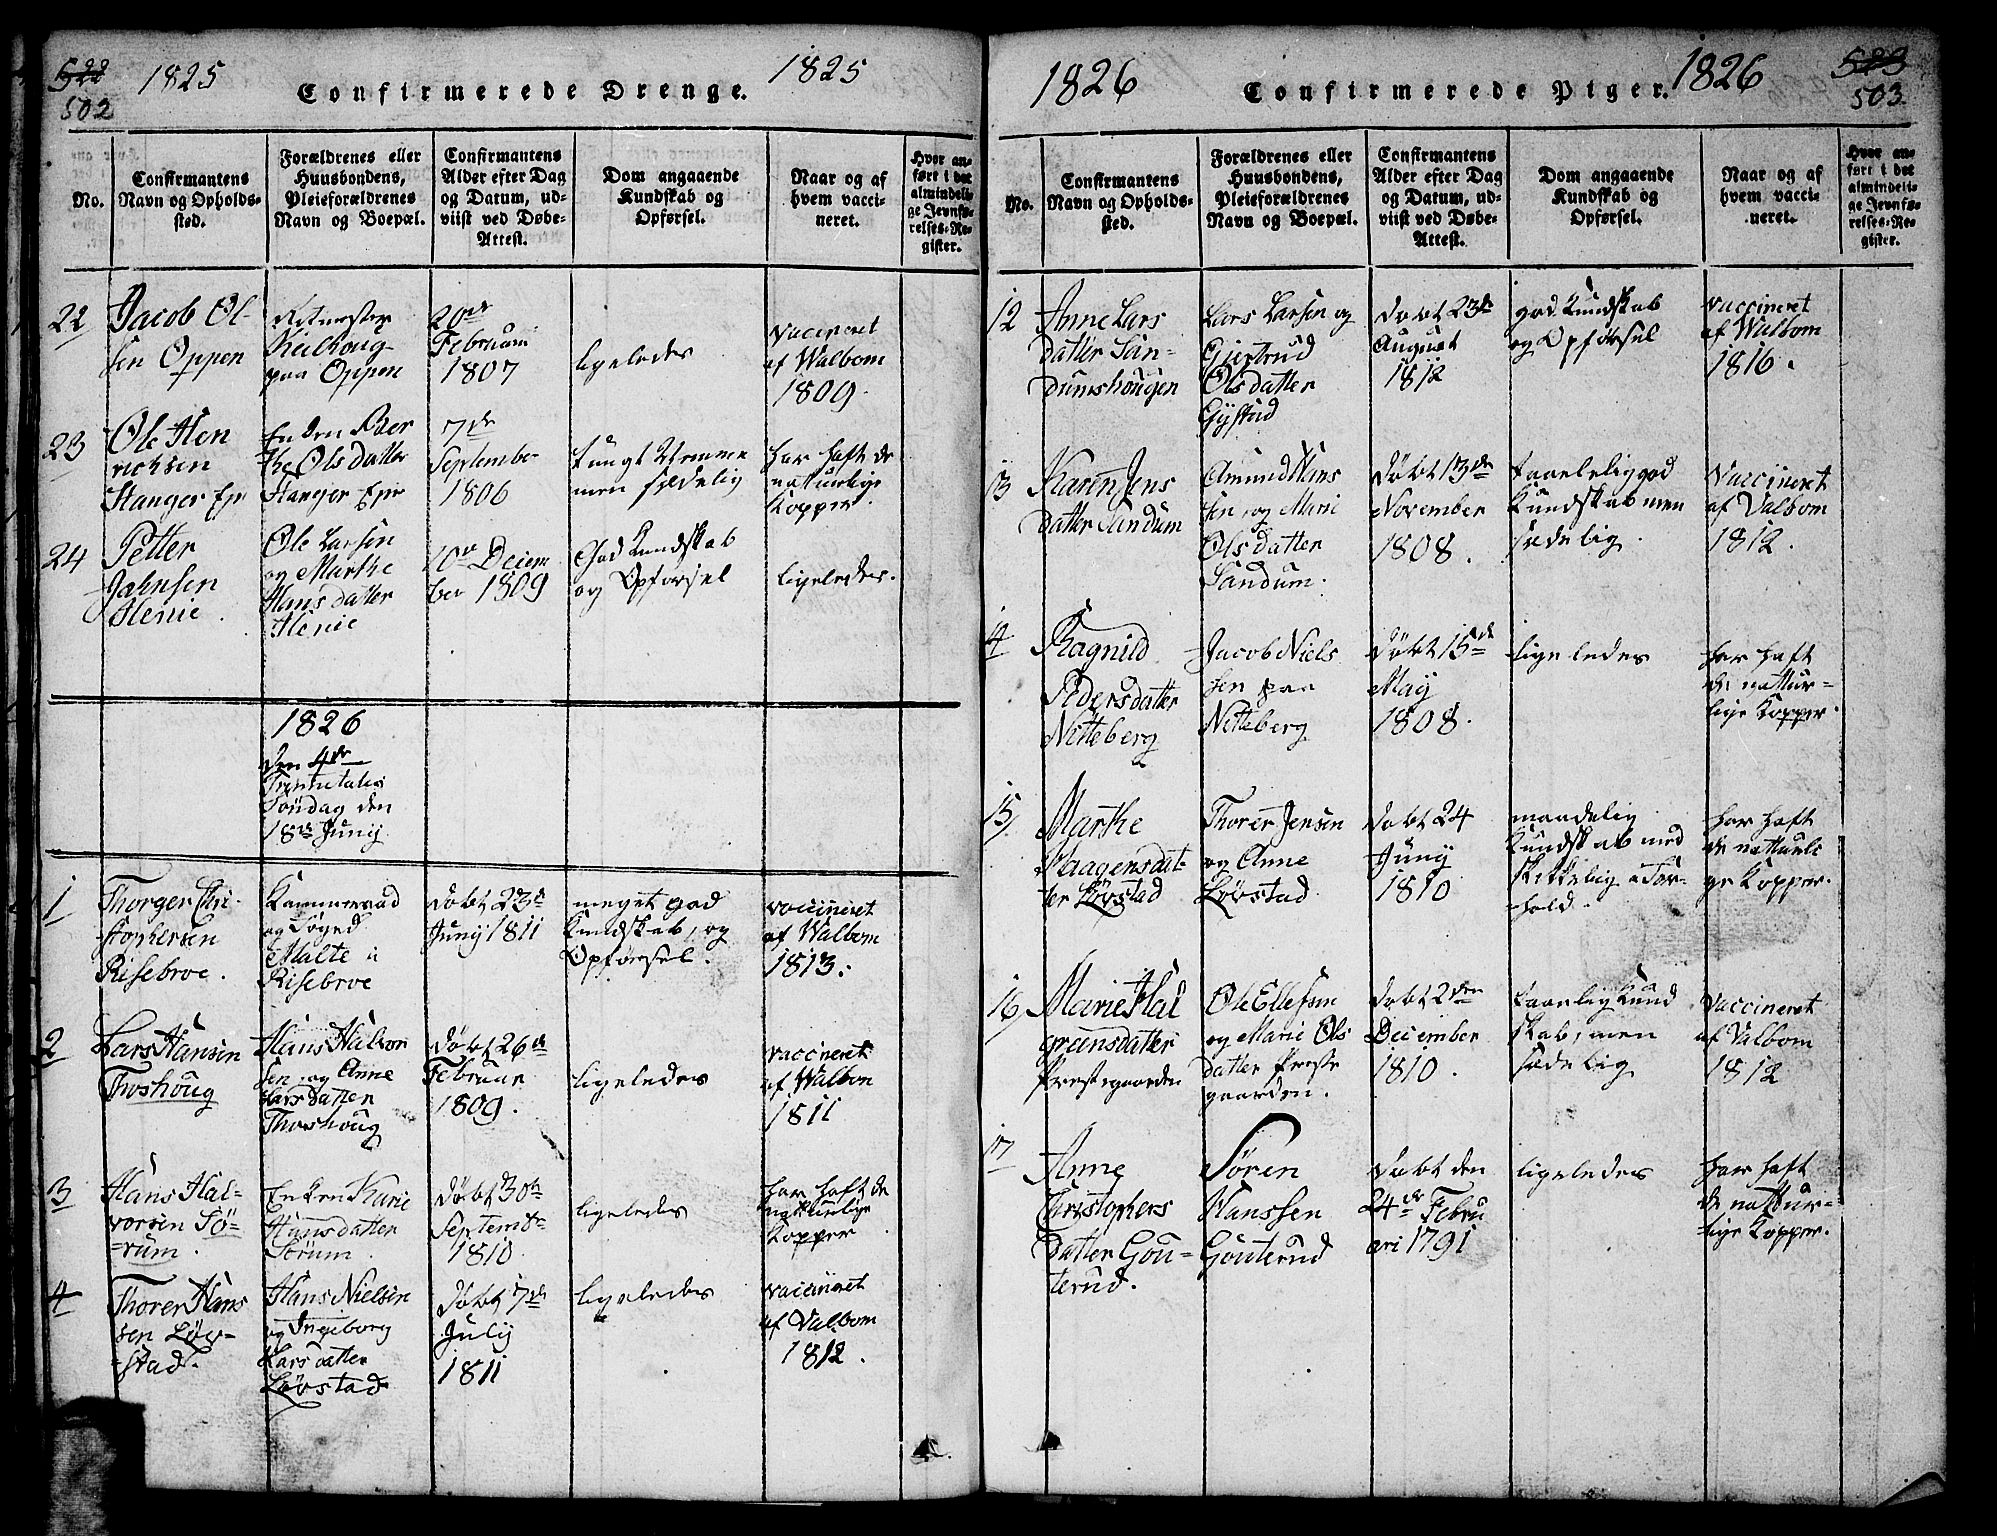 522
502
1825
Confirmerede Drenge.
1825
No.
Confirmantens
Navn og Opholds-
sted.
Forældrenes eller
Huusbondens,
Pleieforældrenes
Navn og Boepæl.
Confirmantens
Alder efter Dag
og Datum, ud-
viist ved Døbe-
Attest.
Dom angaaende
Kundskab og
Opførsel.
Naar og af
hvem vacci-
neret.
Hvor an-
ført i det
almindeli-
ge Jevnfø-
relses-Re-
gister.
22
Jacob Ol-
sen Oppen
Ritmester
paa Oppen
20de
Februari
1807
ligeledes
vaccineret
af Walbom
1809.
23
Ole Hen
richsen
Stanger Eje
Enken Ber
the Olsdatter
Stanger Eje
7de
Septembe
1806
tungt Nemme
men sædelig
har haft de
naturlige
Kopper.
24
Petter
Jahnsen
Henie.
Ole Larsen
og Marthe
Hansdatter
Henie
10de Deiem
ber 1809
God Kundskab
og Opførsel
ligeledes.
1826
den 4de
Trinitatis
Søndag den
18de Junij
1
Thorger Chri-
stophersen
Risebroe.
Kammerraad
og Foged
Malte i
Risebroe
døbt 23d
Junij 1811
meget god
Kundskab, og
Opførsel.
vaccineret
af Walbom
1813.
2
Lars Hansen
Thoshoug
Hans Halvor
sen, og Anne
Larsdatter
Thoshoug
døbt 26d
Februar
1809.
ligeledes
vaccineret
af Walbom
1811
3
Hans Hal-
vorsen Sö-
-rum.
Enken Karie
Hansdatter
Sörum.
døbt 30te
Septembr
1810.
ligeledes
har haft de
naturlige
Kopper
4
Thorer Hans
sen Löv-
-stad.
Hans Nielsen
og Ingeborg
Larsdatter
Lövstad
døbt 7de
July
1811
ligeledes
vaccineret
af Valbom
1812.
1826
Confirmerede Piger.
1826
523
503.
No.
Confirmantens
Navn og Opholds-
sted.
Forældrenes eller
Huusbondens,
Pleieforældrenes
Navn og Boepæl.
Confirmantens
Alder efter Dag
og Datum, ud-
viist ved Døbe-
Attest.
Dom angaaende
Kundskab og
Opførsel.
Naar og af
hvem vacci-
neret.
Hvor an-
ført i det
almindeli-
ge Jevnfø-
relses-Re-
gister.
12
Anne Lars
datter San-
dumshougen
Lars Larsen og
Gjertrud
Olsdatter
Gystad
døbt 23de
August
1812
god Kundskab
og Opførsel
vaccineret
af Walbom
1816.
13
Karen Jens
datter Sandum
Amund Hans
sen, og Marie
Olsdatter
Sandum.
døbt 13de
November
1808.
taaleliggod
Kundskab men
sædelig.
vaccineret
af Valbom
1812.
14
Ragnild
Pedersdatter
Nitteberg
Jacob Niels
sen paa
Nitteberg
døbt 15de
Maij
1808.
ligeledes
har haft
de nattur-
lige Kopper.
15
Marthe
Haagensdat-
ter Lövstad
Thorer Jensen
og Anne
Lövstad
døbt 24
Junij
1810
maadelig
Kundskab med
skikkelig For-
hold.
har haft
de nattuli
ge Kopper.
16
Marie Hal
grimsdatter
Prestegaarden
Ole Ellefsen
og Marie Ols
datter Preste
gaarden.
døbt 2den
December
1810.
taaelig Kund
skab, men
sædelig
vaccineret
af Valbom
1812
17
Anne
Christophers
datter Gou-
terud.
Sören
Hanssen
Gouterud
døbt den
24de Febru
ari 1791
ligeledes
har haft
de nattur-
lige Kopper.